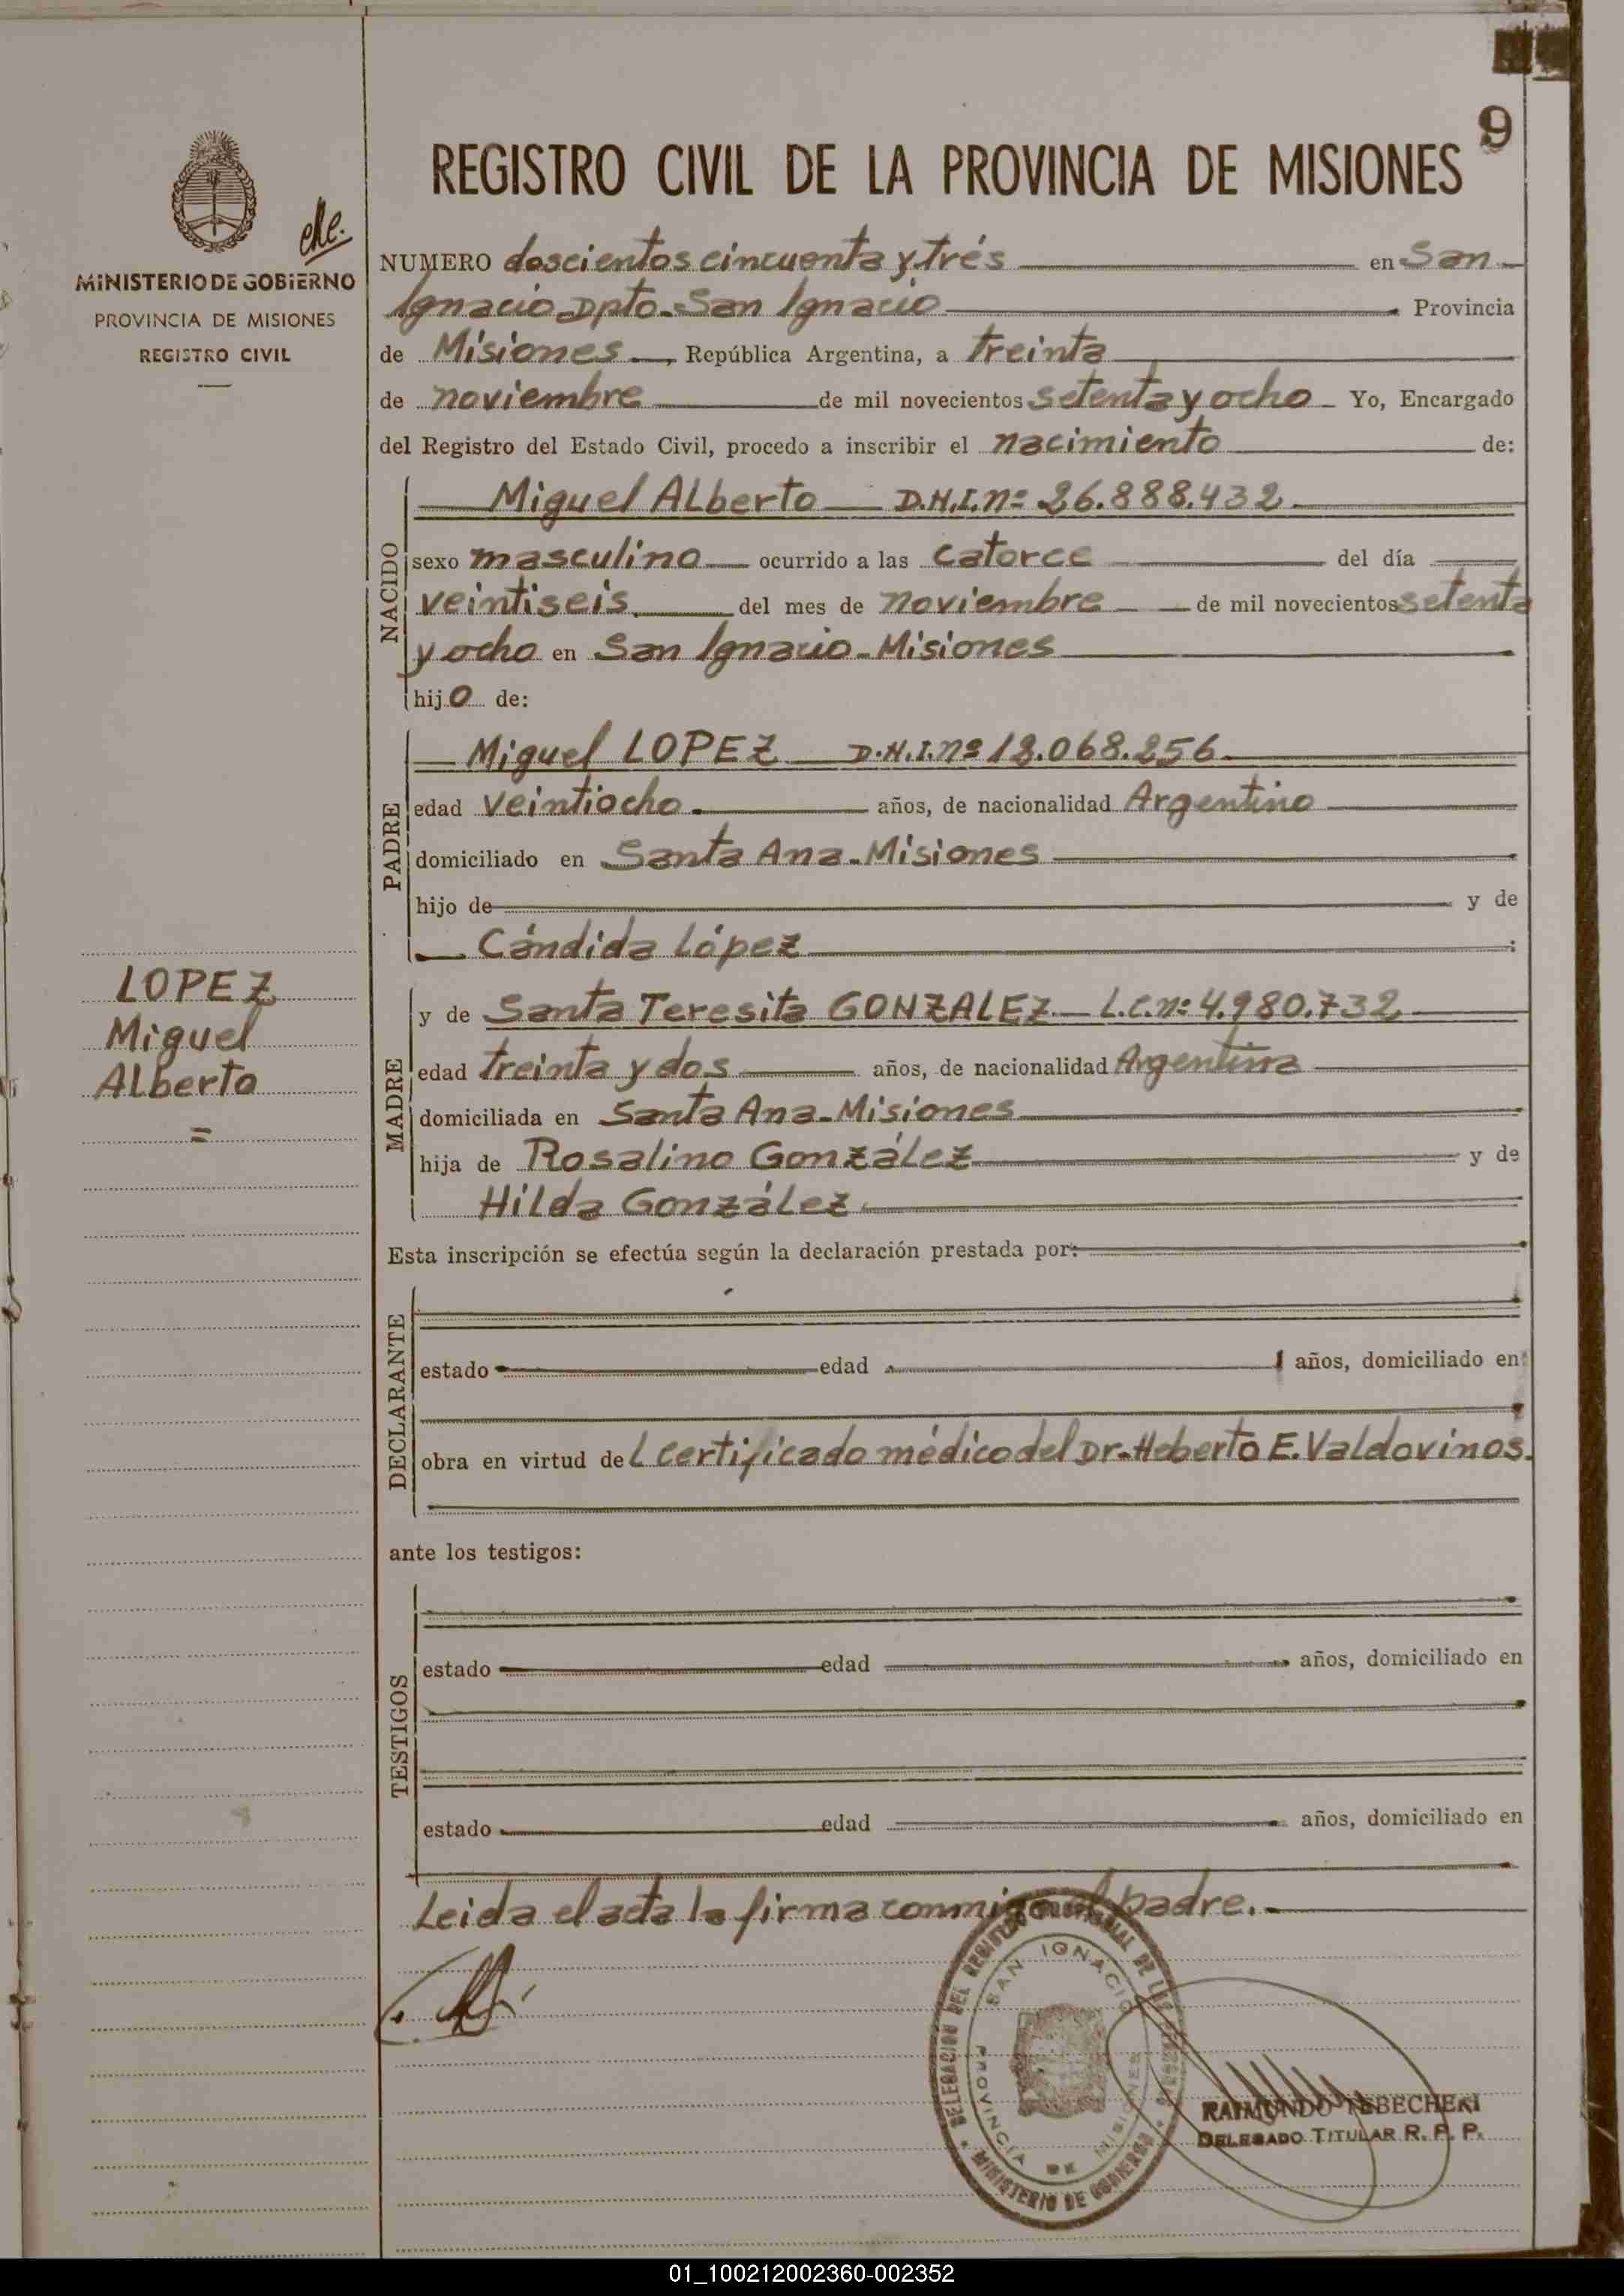 9
REGISTRO CIVIL DE LA PROVINCIA DE MISIONES
MINISTERIO DE GOBIERNO
PROVINCIA DE MISIONES
REGISTRO CIVIL
NUMERO doscientos cincuenta y trés en San
Ignacio Dpto. San Ignacio Provincia
de Misiones, República Argentina, a treinta
de noviembre de mil novecientos setenta y ocho Yo, Encargado
del Registro del Estado Civil, procedo a inscribir el nacimiento de:
NACIDO
Miguel ALberto D.N.I. nº 26.888.432
sexo masculino ocurrido a las catorce del día
veintiseis del mes de noviembre de mil novecientos setenta
y ocho en San Ignacio-Misiones
hijo de:
PADRE
Miguel LOPEZ D.N.I. nº
edad veintiocho años, de nacionalidad Argentino
domiciliado en Santa Ana-Misiones
hijo de y de
Cándida López
LOPEZ
Miguel
ALberto
=
MADRE
y de Santa Teresita GONZALEZ L.C. nº 4.980.732
edad treinta y dos años, de nacionalidad Argentina
domiciliada en Santa Ana-Misiones
hija de Rosalino González y de
Hilda González
Esta inscripción se efectúa según la declaración prestada por:
DECLARANTE
estado edad años, domiciliado en
obra en virtud del certificado médico del Dr. Heberto E. Valdovinos.
ante los testigos:
TESTIGOS
estado edad años, domiciliado en
estado edad años, domiciliado en
Leida el acta la firma conmigo el padre.-
DELEGACION DEL REGISTRO PROVINCIAL DE LAS
SAN IGNACIO
PROVINCIA DE MISIONES
MINISTERIO DE GOBIERNO
RAIMUNDO TEBECHERI
DELEGADO TITULAR R. P. P.
01_100212002360-002352